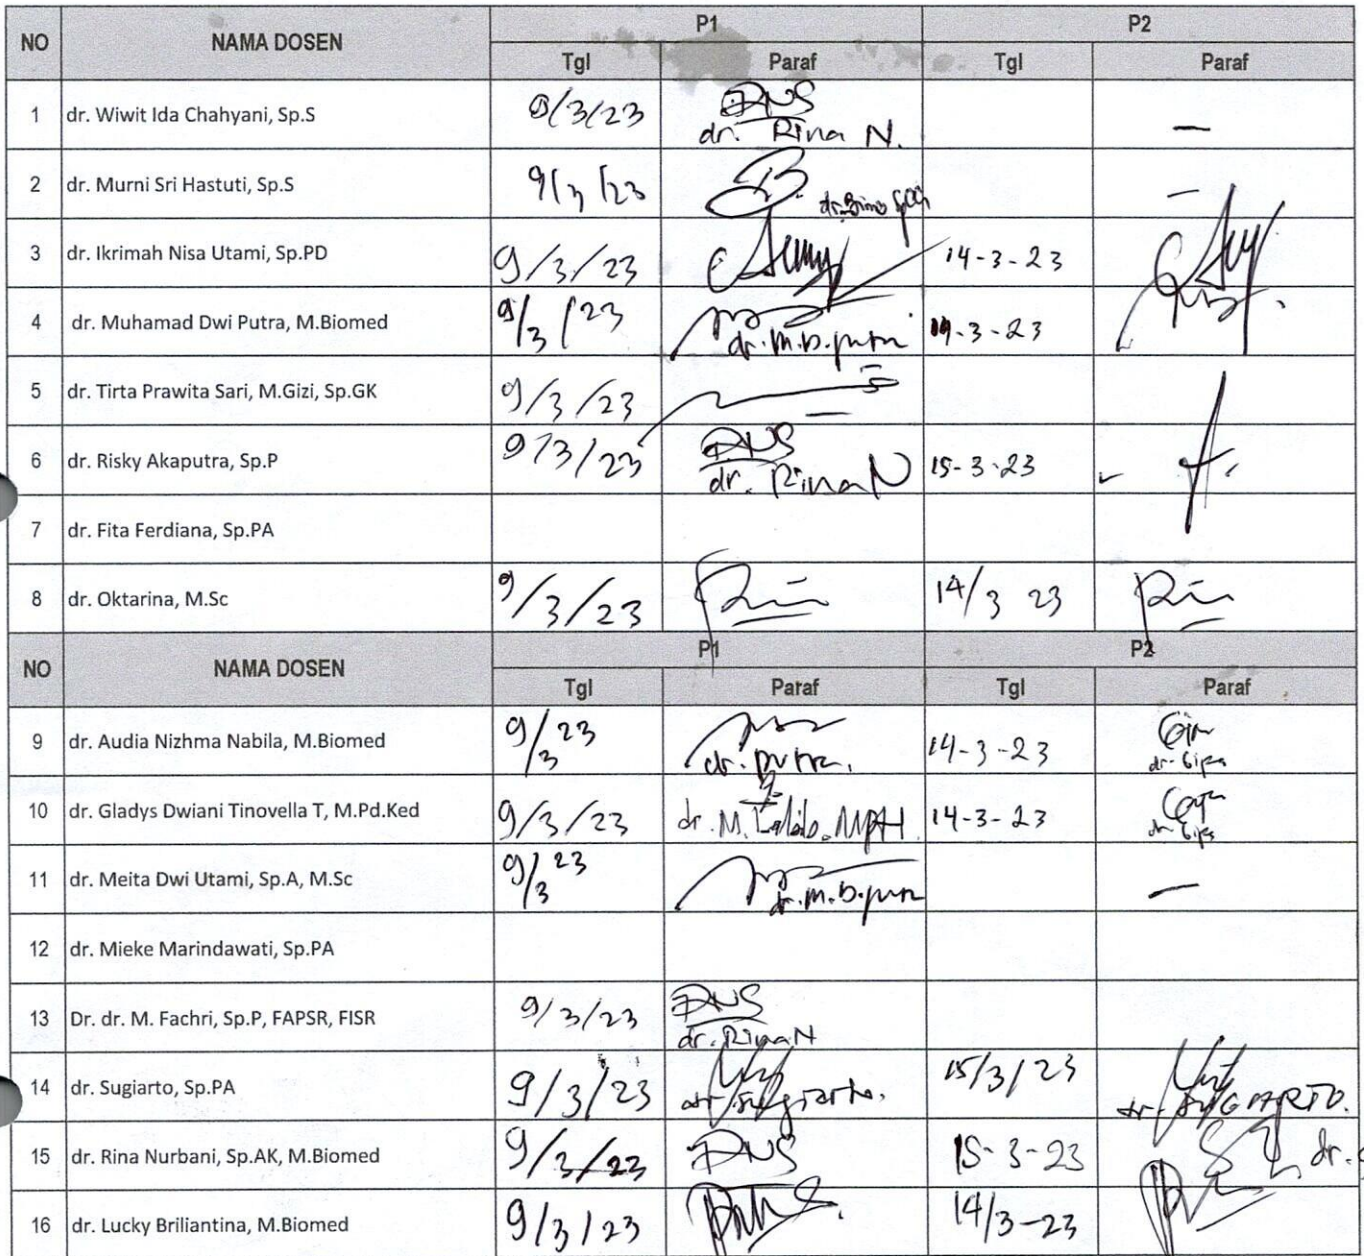 NO NAMA DOSEN P1 P2
Tgl Paraf Tgl Paraf
1 dr. Wiwit Ida Chahyani, Sp.S 9/3/23 dr. Rina N. —
2 dr. Murni Sri Hastuti, Sp.S 9/3/23 —
3 dr. Ikrimah Nisa Utami, Sp.PD 9/3/23 14-3-23
4 dr. Muhamad Dwi Putra, M.Biomed 9/3/23 dr. M.D. putra 14-3-23
5 dr. Tirta Prawita Sari, M.Gizi, Sp.GK 9/3/23
6 dr. Risky Akaputra, Sp.P 9/3/23 dr. Rina N 15-3-23
7 dr. Fita Ferdiana, Sp.PA
8 dr. Oktarina, M.Sc 9/3/23 14/3 23
NO NAMA DOSEN P1 P2
Tgl Paraf Tgl Paraf
9 dr. Audia Nizhma Nabila, M.Biomed 9/3 23 dr. putra. 14-3-23
10 dr. Gladys Dwiani Tinovella T, M.Pd.Ked 9/3/23 dr. M. Labib. MPH. 14-3-23
11 dr. Meita Dwi Utami, Sp.A, M.Sc 9/3 23 dr. M. D. putra —
12 dr. Mieke Marindawati, Sp.PA
13 Dr. dr. M. Fachri, Sp.P, FAPSR, FISR 9/3/23 dr. Rina N
14 dr. Sugiarto, Sp.PA 9/3/23 dr. Sugiarto. 15/3/23 dr. SUGIARTO.
15 dr. Rina Nurbani, Sp.AK, M.Biomed 9/3/23 15-3-23 dr.
16 dr. Lucky Briliantina, M.Biomed 9/3/23 14/3-23